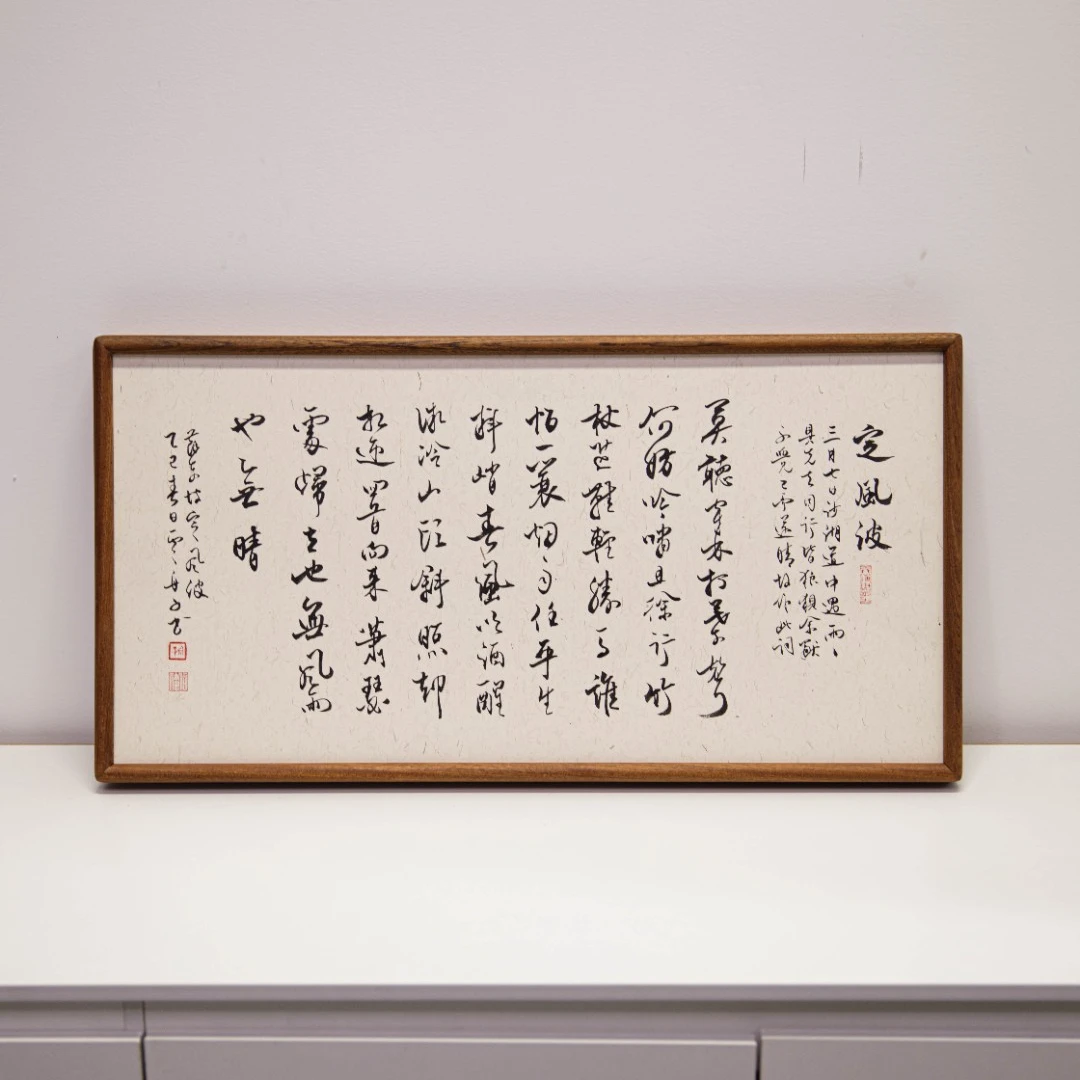 定風波
三月七日沙湖道中遇雨〻
具先去同行皆狼狽余獨
不覺已而遂晴故作此詞
莫聽穿林打葉聲
何妨吟嘯且徐行竹
杖芒鞋輕勝馬誰
怕一蓑烟雨任平生
料峭春風吹酒醒
微冷山頭斜照却
相迎回首向来蕭瑟
處歸去也無風雨
也無晴
蘇東坡定風波
乙巳春日